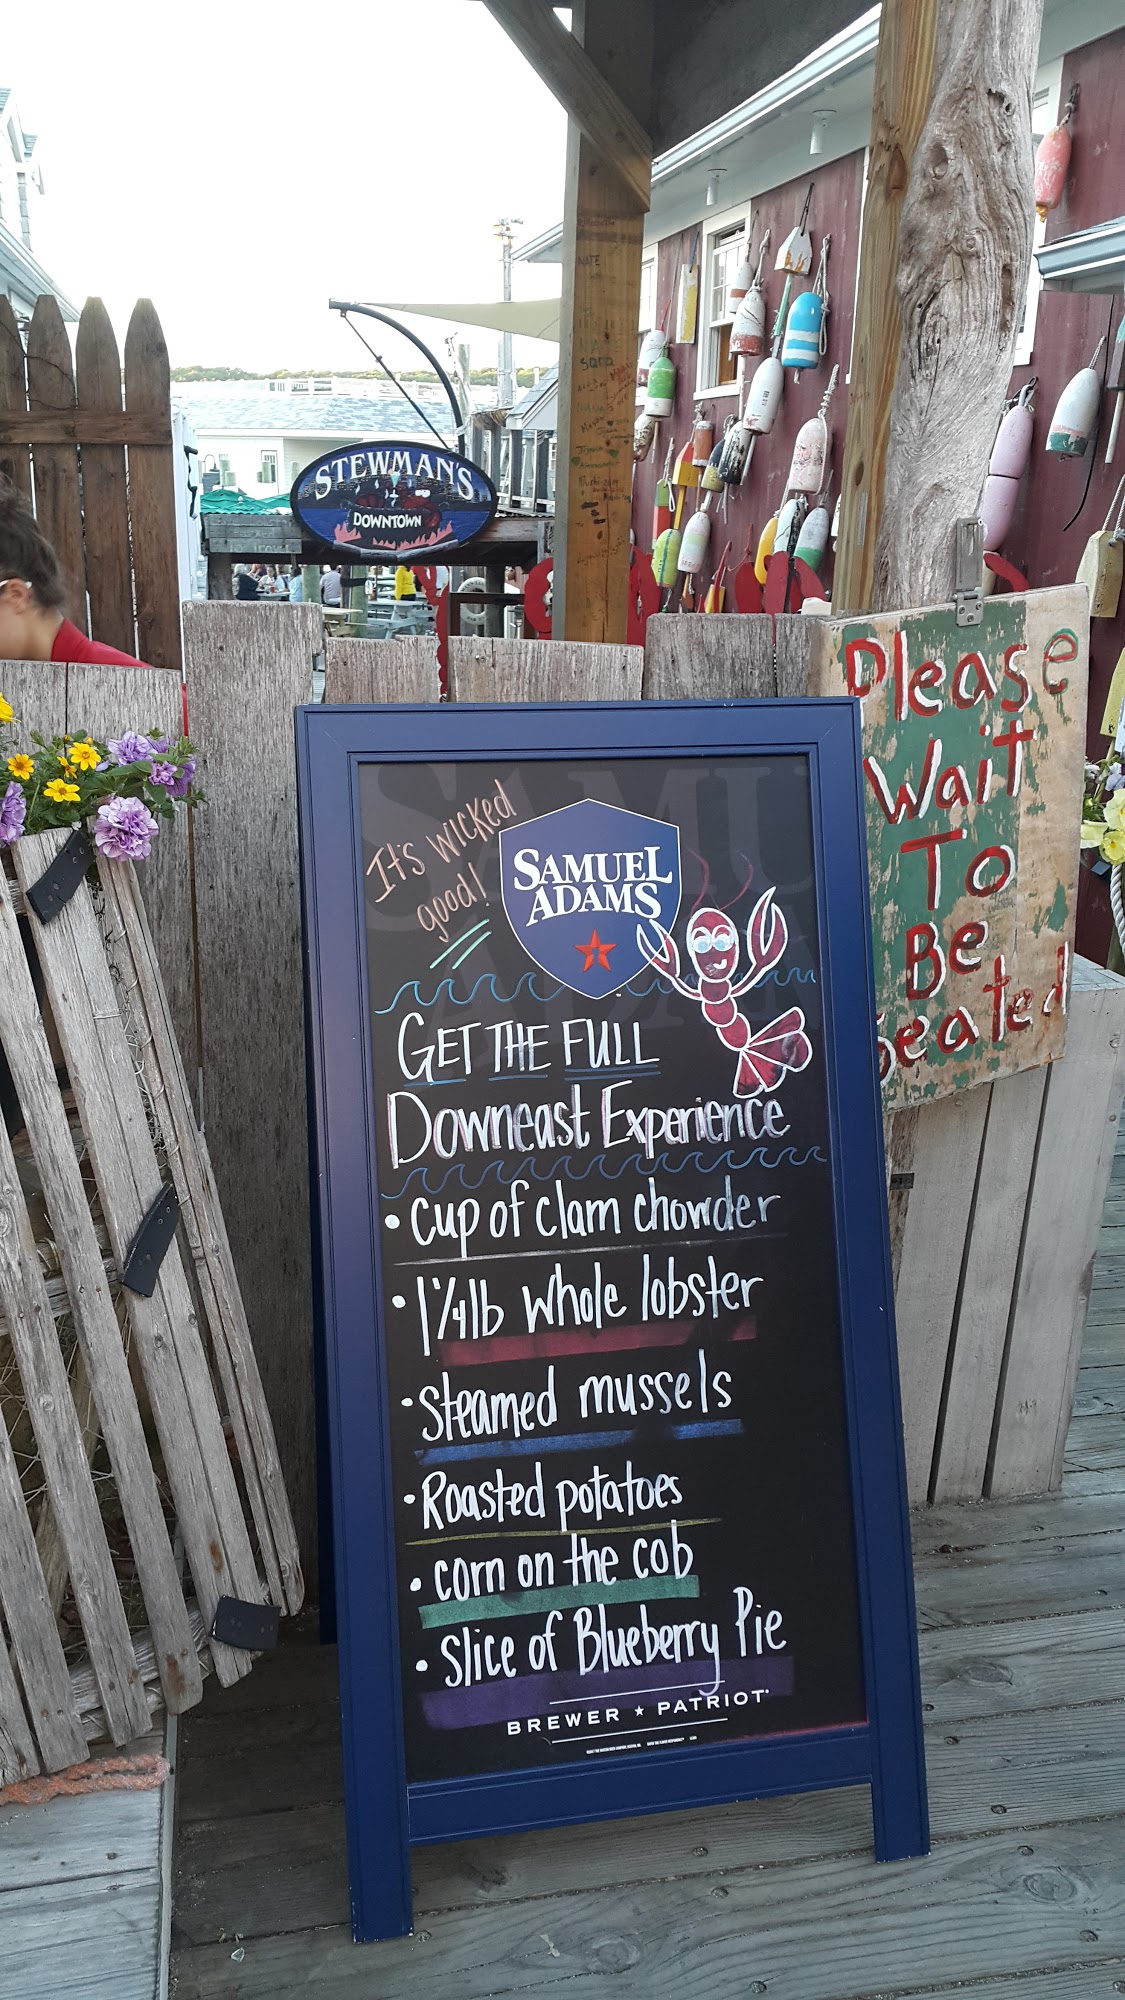 STEWMAN'S
DOWNTOWN
NATE
Please
Wait
To
Be
Seated
It's wicked
good!
SAMUEL
ADAMS
GET THE FULL
Downeast Experience
• cup of clam chowder
• 1 1/4 lb whole lobster
• steamed mussels
• Roasted potatoes
• corn on the cob
• slice of Blueberry Pie
BREWER ★ PATRIOT